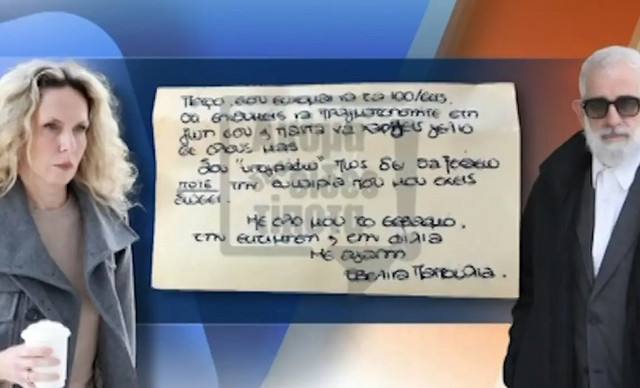 Πέτρο, σου εύχομαι να τα 100/εις.
Θα επιθυμείς να πραγματοποιηθε στη
ζωή σου ή πάντα να χαρίζεις γέλιο
σε όλους μας
Σου "υπογράφω" πως δε θα ξεχάσω
ποτέ την ευκαιρία που μου έχεις
δώσει.
Με όλο μου το σεβασμό,
την εκτίμηση ή στη φιλία
Με αγάπη
Εβελίνα Παπούλια.